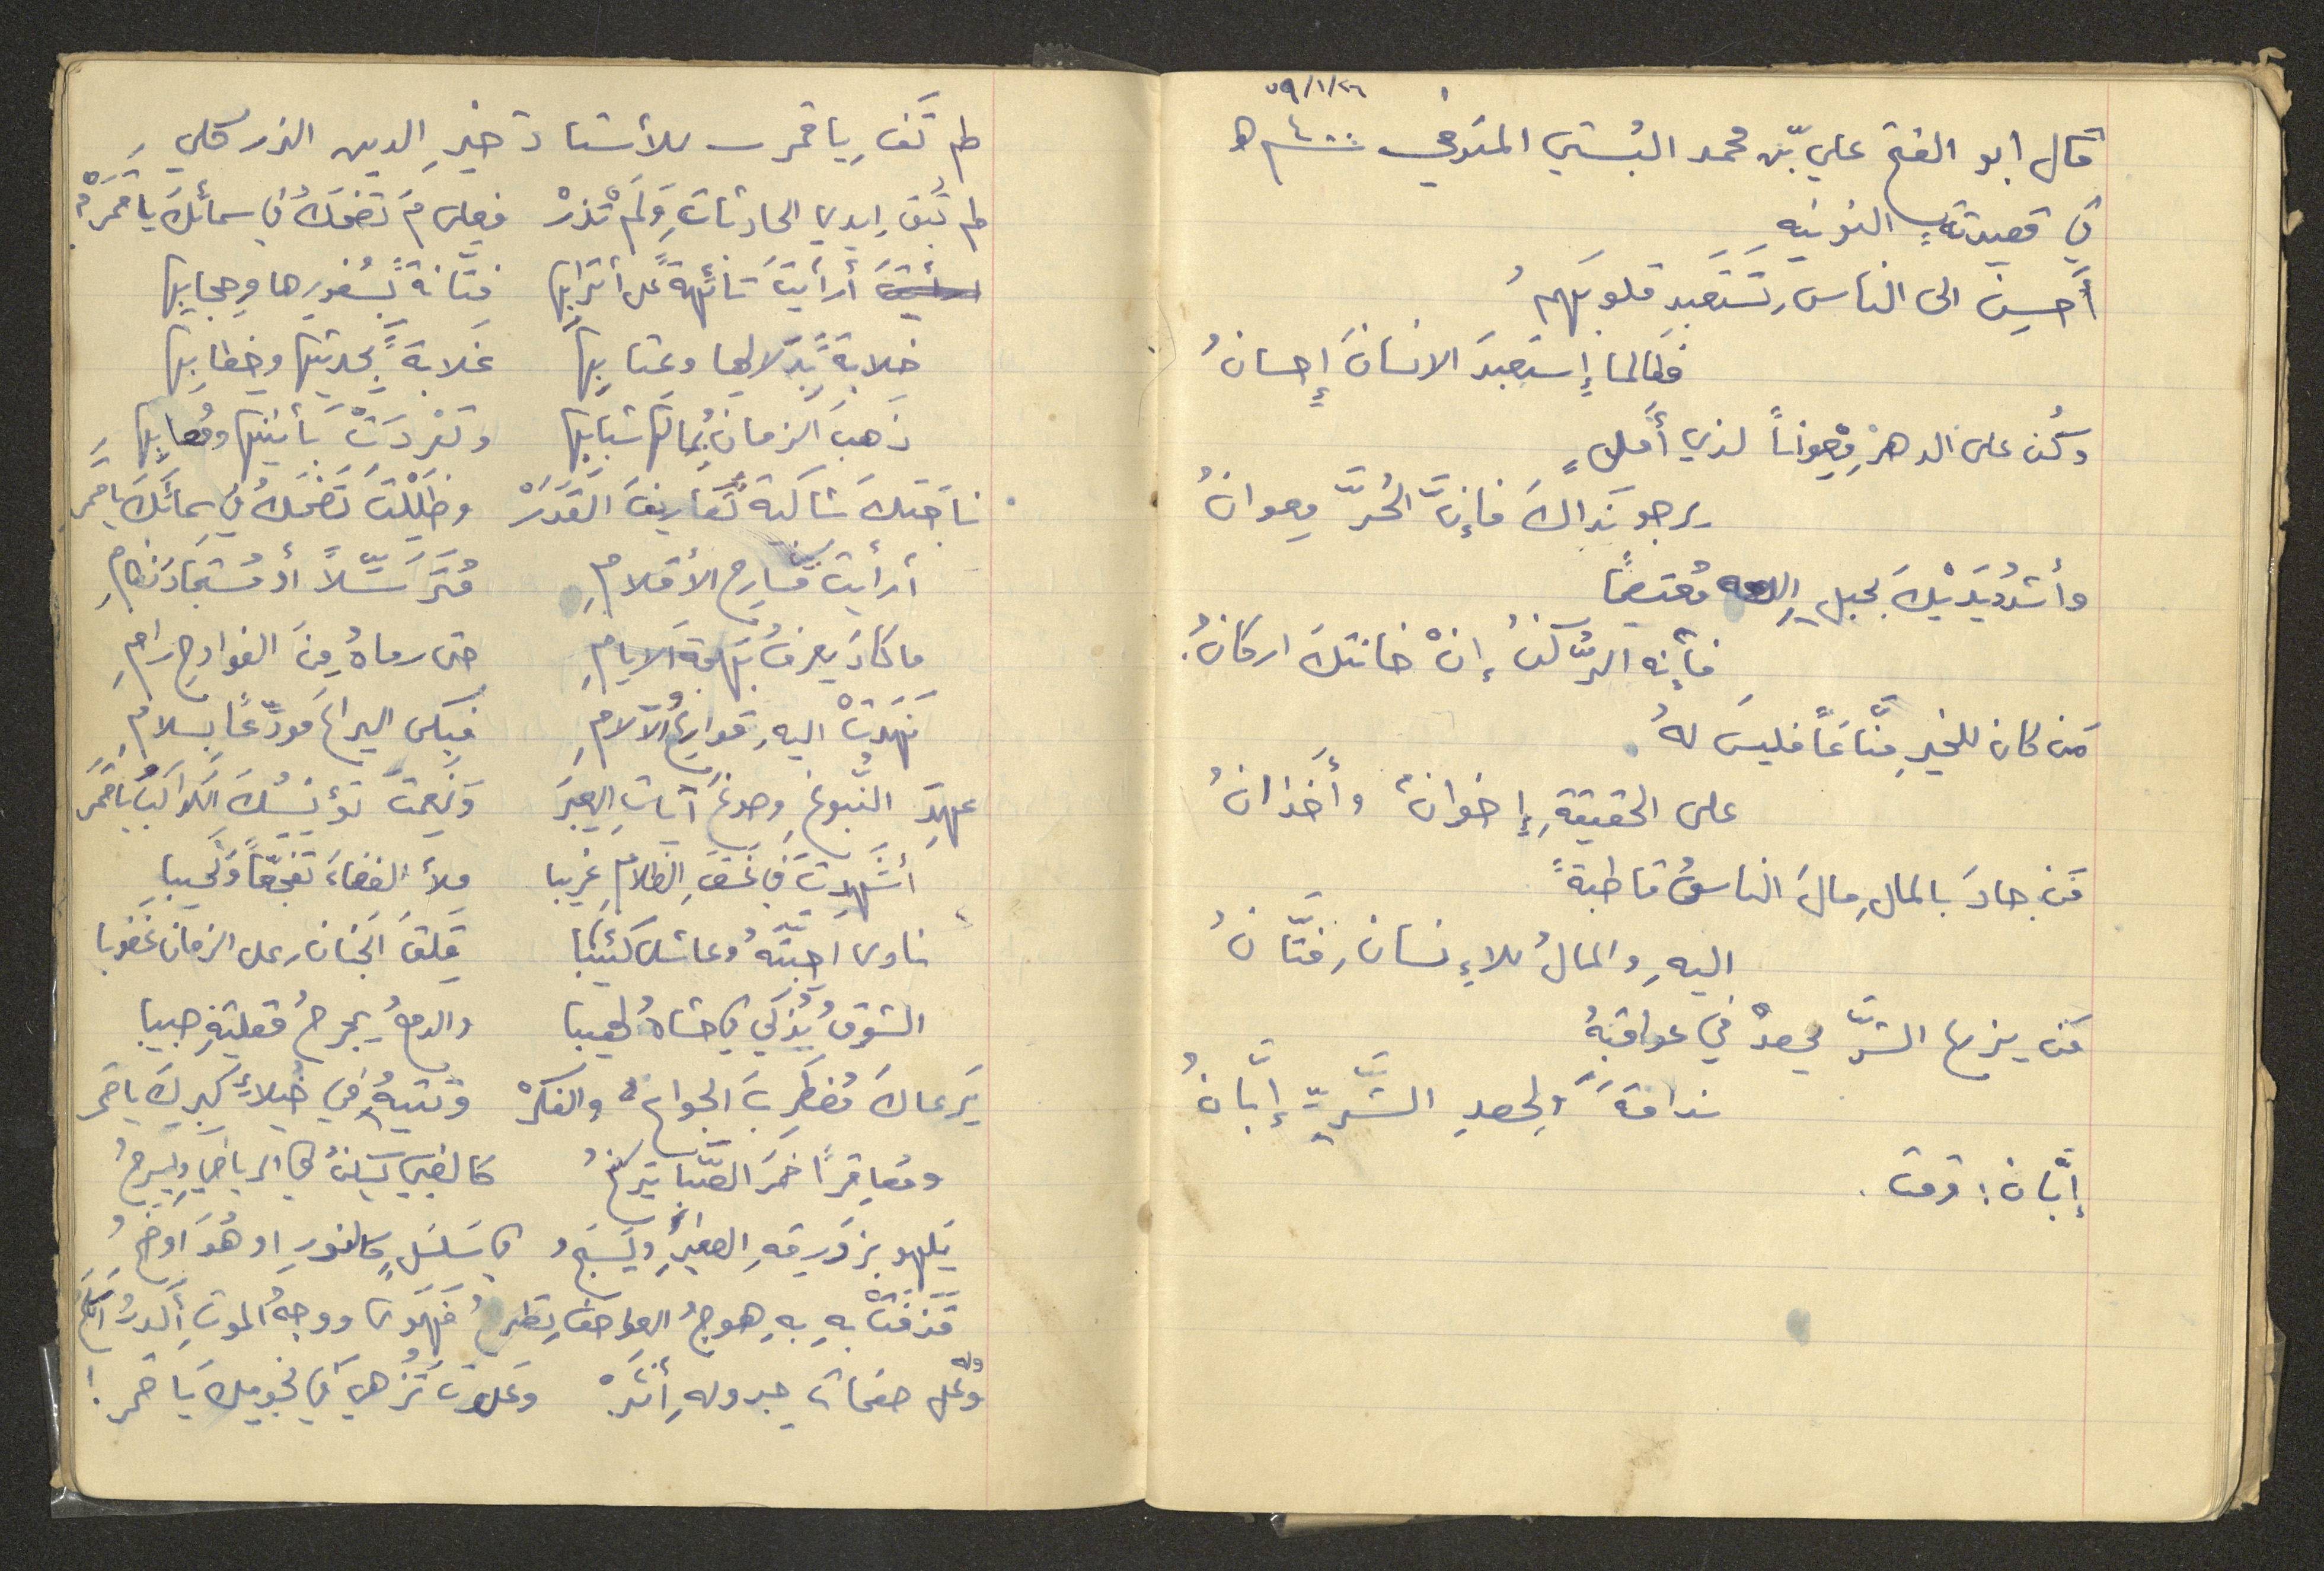 ٥٩/١/٢٦
قال ابو الفتح علي بّن محمد البُستي المتوفي ٤٠٠ هـ
في قصيدتهِ النونيه
أَحسِن الى الناسِ تَستَعبِد قلوبَهمُ
فطالما إِستعبدَ الانسانَ إِحسانُ
وكُن على الدهرِ مِعواناً لذي أَملٍ
يرجو نداكَ فإِنَّ الحُرَّ معوانُ
وأشدُد يَدَيْكَ بحبلِ اللهِ مُعتصماً
فأِنه الرُّكنُ إنْ خانتكَ اركانُ
مَن كان للخيرِ منّاعاً فليسَ لهُ
على الحقيقةِ إِخوانٌ وأَخذانُ
مَن جادَ بالمالِ مالَ الناسُ قاطبةً
اليهِ والمالُ للإِنسان فتّانُ
مَن يزرع الشرَّ يحصدْ في عواقبهُ
ندامةَ ولِحصدِ الشَّرِّ إِبّانُ
إِبّان : وقت .
لم تَفِ يا قمر للأستاذ خيرِ الدين الزركلي
لم تُبقِ ايدي الحادثاتِ وَلَمْ تَذرْ فعلى مَ تَضحكُ في سمائكَ يا قمَرْ؟
أرأيتَ تائهةً على أترابها فتّانةً بسُفورِها وحجابِها
خلابةً بِدَلالِها وعتابِها غلابةً بحديثِها وخطابِها
ذهبَ الزمانُ بمالِها شبابِها وتفرّدَتْ بأنينِها ومُصابِها
ناجَتكَ شاكيةً تصاريفَ القَدَرْ وظَلَلْتَ تَضحكُ في سمائكَ يا قمَر
أرأيتَ مسارحِ الأقلامِ مُترَسّلاً أو مُستجادَ نظامِ
ما كادَ يعرفُ بَهمةَ الايامِ حتى رماهُ مِنَ الفوادحِ رامِ
نَهَدتْ اليهِ قوارعُ الآلامِ فبكى اليراعَ مودّعاً بسلامِ
عهدَ النّبوغِ وصوغَ آياتِ العِبَر وَنعِمتَ تؤنسُكَ الكواكبُ يا قمَر
أشَهِدتَ في غَسَقِ الظلامِ غريبا ملأ الفضاءَ تفجّعاً ونَحيبا
ناوى احبّتهُ وعاش كئيبا قَلِقَ الجنانِ على الزمان غَضوبا
الشوقُ يُذكي في حشاهُ لهيبا والدمعُ يجرحُ مقلتيهِ صبيبا
يَرعاكَ مُضطَرِبَ الجوانحِ والفِكَرْ وتتيهُ في خيلاءِ كِبرِكَ يا قمر
ومُعاقراً خَمرَ الصّبا يترنحُ كالظبي يَسكنُ في الرياضِ ويَسرحُ
يَلهو بزَورقهِ الصغيرِ ويَسبَحُ في سَلسَلٍ كالنورِ او هُوَ اوضحُ
قَذَفَتْ بهِ بهِ هوجُ العواصفِ تطرحُ فَهَوى ووجهُ الموتِ أكدرُ اكلحُ
وله وعلى صفحاتِ جدولهِ أثَرْ وعَلَوتَ تَزهي في نجومِكَ يَا قمر !